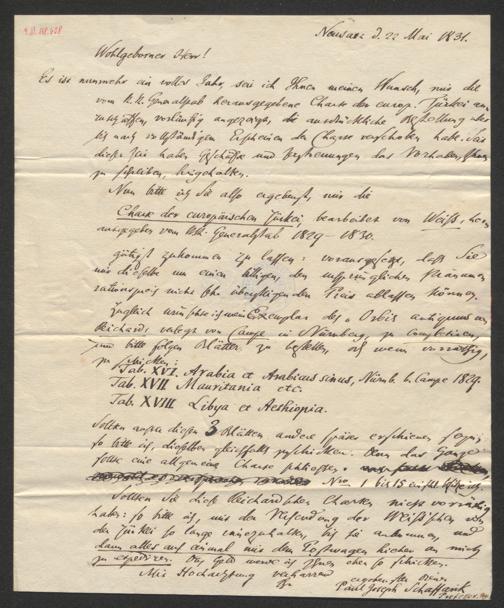 Neusatz d. 22 Mai 1831.
Wohlgeborner Herr!
Es ist nunmehr ein volles Jahr, seit ich Ihnen meinen Wunsch, mir die
vom K. K. Generalstab herausgegebene Charte der europ. Türkei an
zuschaffen, vorläufig angezeigt, die ausdrückliche Bestellung aber
bis nach vollständigem Erscheinen der Charte verschoben habe. Seit
dieser Zeit haben Geschäfte und Zerstreuungen das Vorhaben, Ihnen
zu schreiben, hingehalten.
Nun bitte ich Sie also ergebenst, mir die
Charte der europäischen Türkei bearbeitet von Weiß, heraus
ausgegeben vom K.K. Generalstab 1829 – 1830.
gütigst zukommen zu lassen: vorausgesetzt, daß Sie
mir dieselbe um einen billigen, den ursprünglichen Pränume
rationspreis nicht sehr übersteigenden Preis ablassen können.
Zugleich wünschte ich mein Exemplar des Orbis antiquus von
Reichard, verlegt von Campe in Nürnberg, zu completiren,
und bitte folgende Blätter zu bestellen, oder wenn vorräthig,
zu schicken:
Tab. XVI. Arabia et Arabicus sinus, Nürnb. b. Campe 18
Tab. XVII Mauritania etc.
Tab. XVIII Libya et Aethiopia.
Sollten außer diesen 3 Blättern andere später erschienen seyn,
so bitte ich, dieselben gleichfalls zu schicken. Denn das Ganze
sollte eine allgemeine Charte schliessen.
Nro 1 bis 15 besitze ich
Sollten Sie diese Reichard'schen Charten nicht vorräthig
haben: so bitte ich, mit der Versendung der Weißischen von
der Türkei so lange innezuhalten, bis sie ankommen, und
dann alles auf einmal mit dem Postwagen hieher an mich
zu expediren. Das Geld werde ich Ihnen eben so schicken.
Mit Hochachtung verharrend
ergebenster Diener
Paul Joseph Schaffarik